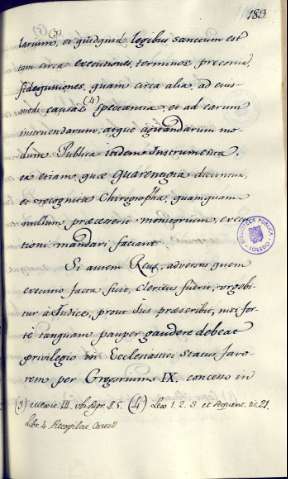 183
tarum, (3) et quidquid legibus sancitum est
tam circa executiones, terminos, praecones,
fidejussiones, quam circa alia, ad ejus-
modi causas (4) spectantia, et ad earum
instruendarum, atque agitandarum mo-
dum. Publica itidem Instrumenta,
ea etiam quae Quarentigia dicuntur,
et recognita Chirographa, quamquam
nullum praecesserit monitorium, execu-
tioni mandari faciant.
Si autem Reus, adversus quem
executio facta fuit, clericus fuerit,
a Judices, prout Jus praescribit, nisi for-
te tanquam pauper gaudere debeat
privilegio in Ecclesiastici status favo-
rem per Gregorium IX. concesso in
(3) 85. (4) Leis 1. 2. 3. et sequent. tit. 21.
Libr. 4. Recopilac.
BIBLIOTECA PUBLICA
TOLEDO